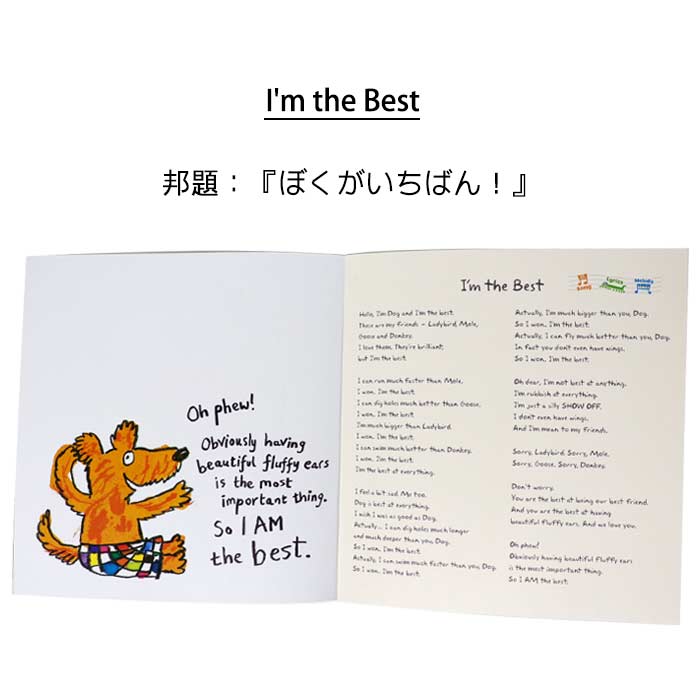 I'm the Best
邦題：『ぼくがいちばん！』
Oh phew!
Obviously having
beautiful fluffy ears
is the most
important thing.
So I AM
the best.
I'm the Best
Song
Lyrics
Melody
Hello, I'm Dog and I'm the best.
These are my friends - Ladybird, Mole,
Goose and Donkey.
I love them. They're brilliant,
but I'm the best.
I can run much faster than Mole.
I won. I'm the best.
I can dig holes much better than Goose.
I won. I'm the best.
I'm much bigger than Ladybird.
I won. I'm the best.
I can swim much better than Donkey.
I won. I'm the best.
I'm the best at everything.
I feel a bit sad. Me too.
Dog is best at everything.
I wish I was as good as Dog.
Actually... I can dig holes much longer
and much deeper than you, Dog.
So I won. I'm the best.
Actually, I can swim much faster than you, Dog.
So I won. I'm the best.
Actually, I'm much bigger than you, Dog.
So I won. I'm the best.
Actually, I can fly much better than you, Dog.
In fact you don't even have wings.
So I won. I'm the best.
Oh dear, I'm not best at anything.
I'm rubbish at everything.
I'm just a silly SHOW OFF.
I don't even have wings.
And I'm mean to my friends.
Sorry, Ladybird. Sorry, Mole.
Sorry, Goose. Sorry, Donkey.
Don't worry.
You are the best at being our best friend.
And you are the best at having
beautiful fluffy ears. And we love you.
Oh phew!
Obviously having beautiful fluffy ears
is the most important thing.
So I AM the best.